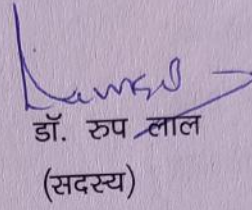 डॉ. रुप लाल
(सदस्य)